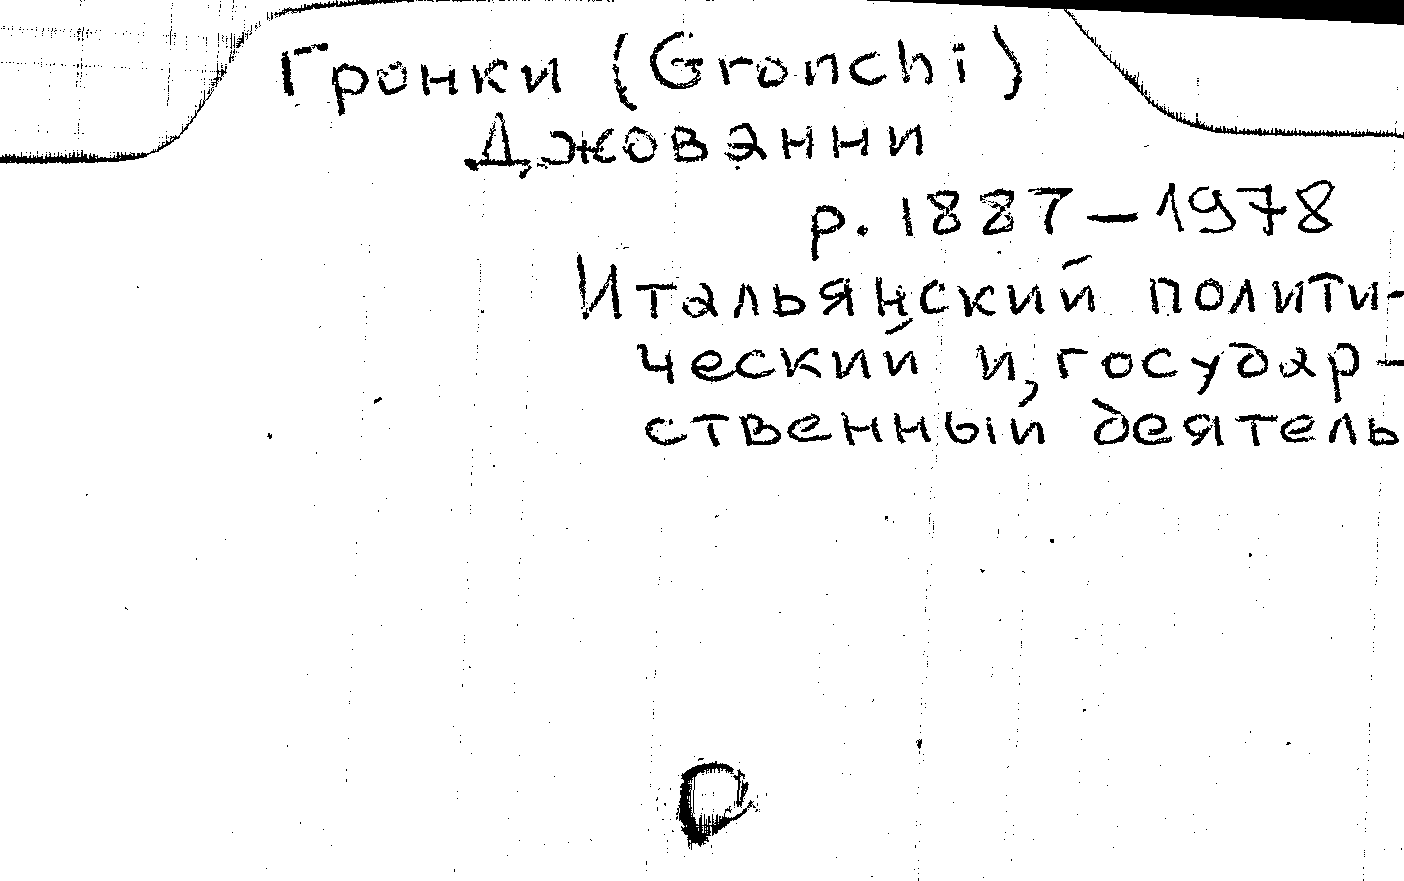 Гронки (Gronchi)
Джованни
р. 1887 – 1978
Итальянский полити-
ческий и, государ-
ственный деятель